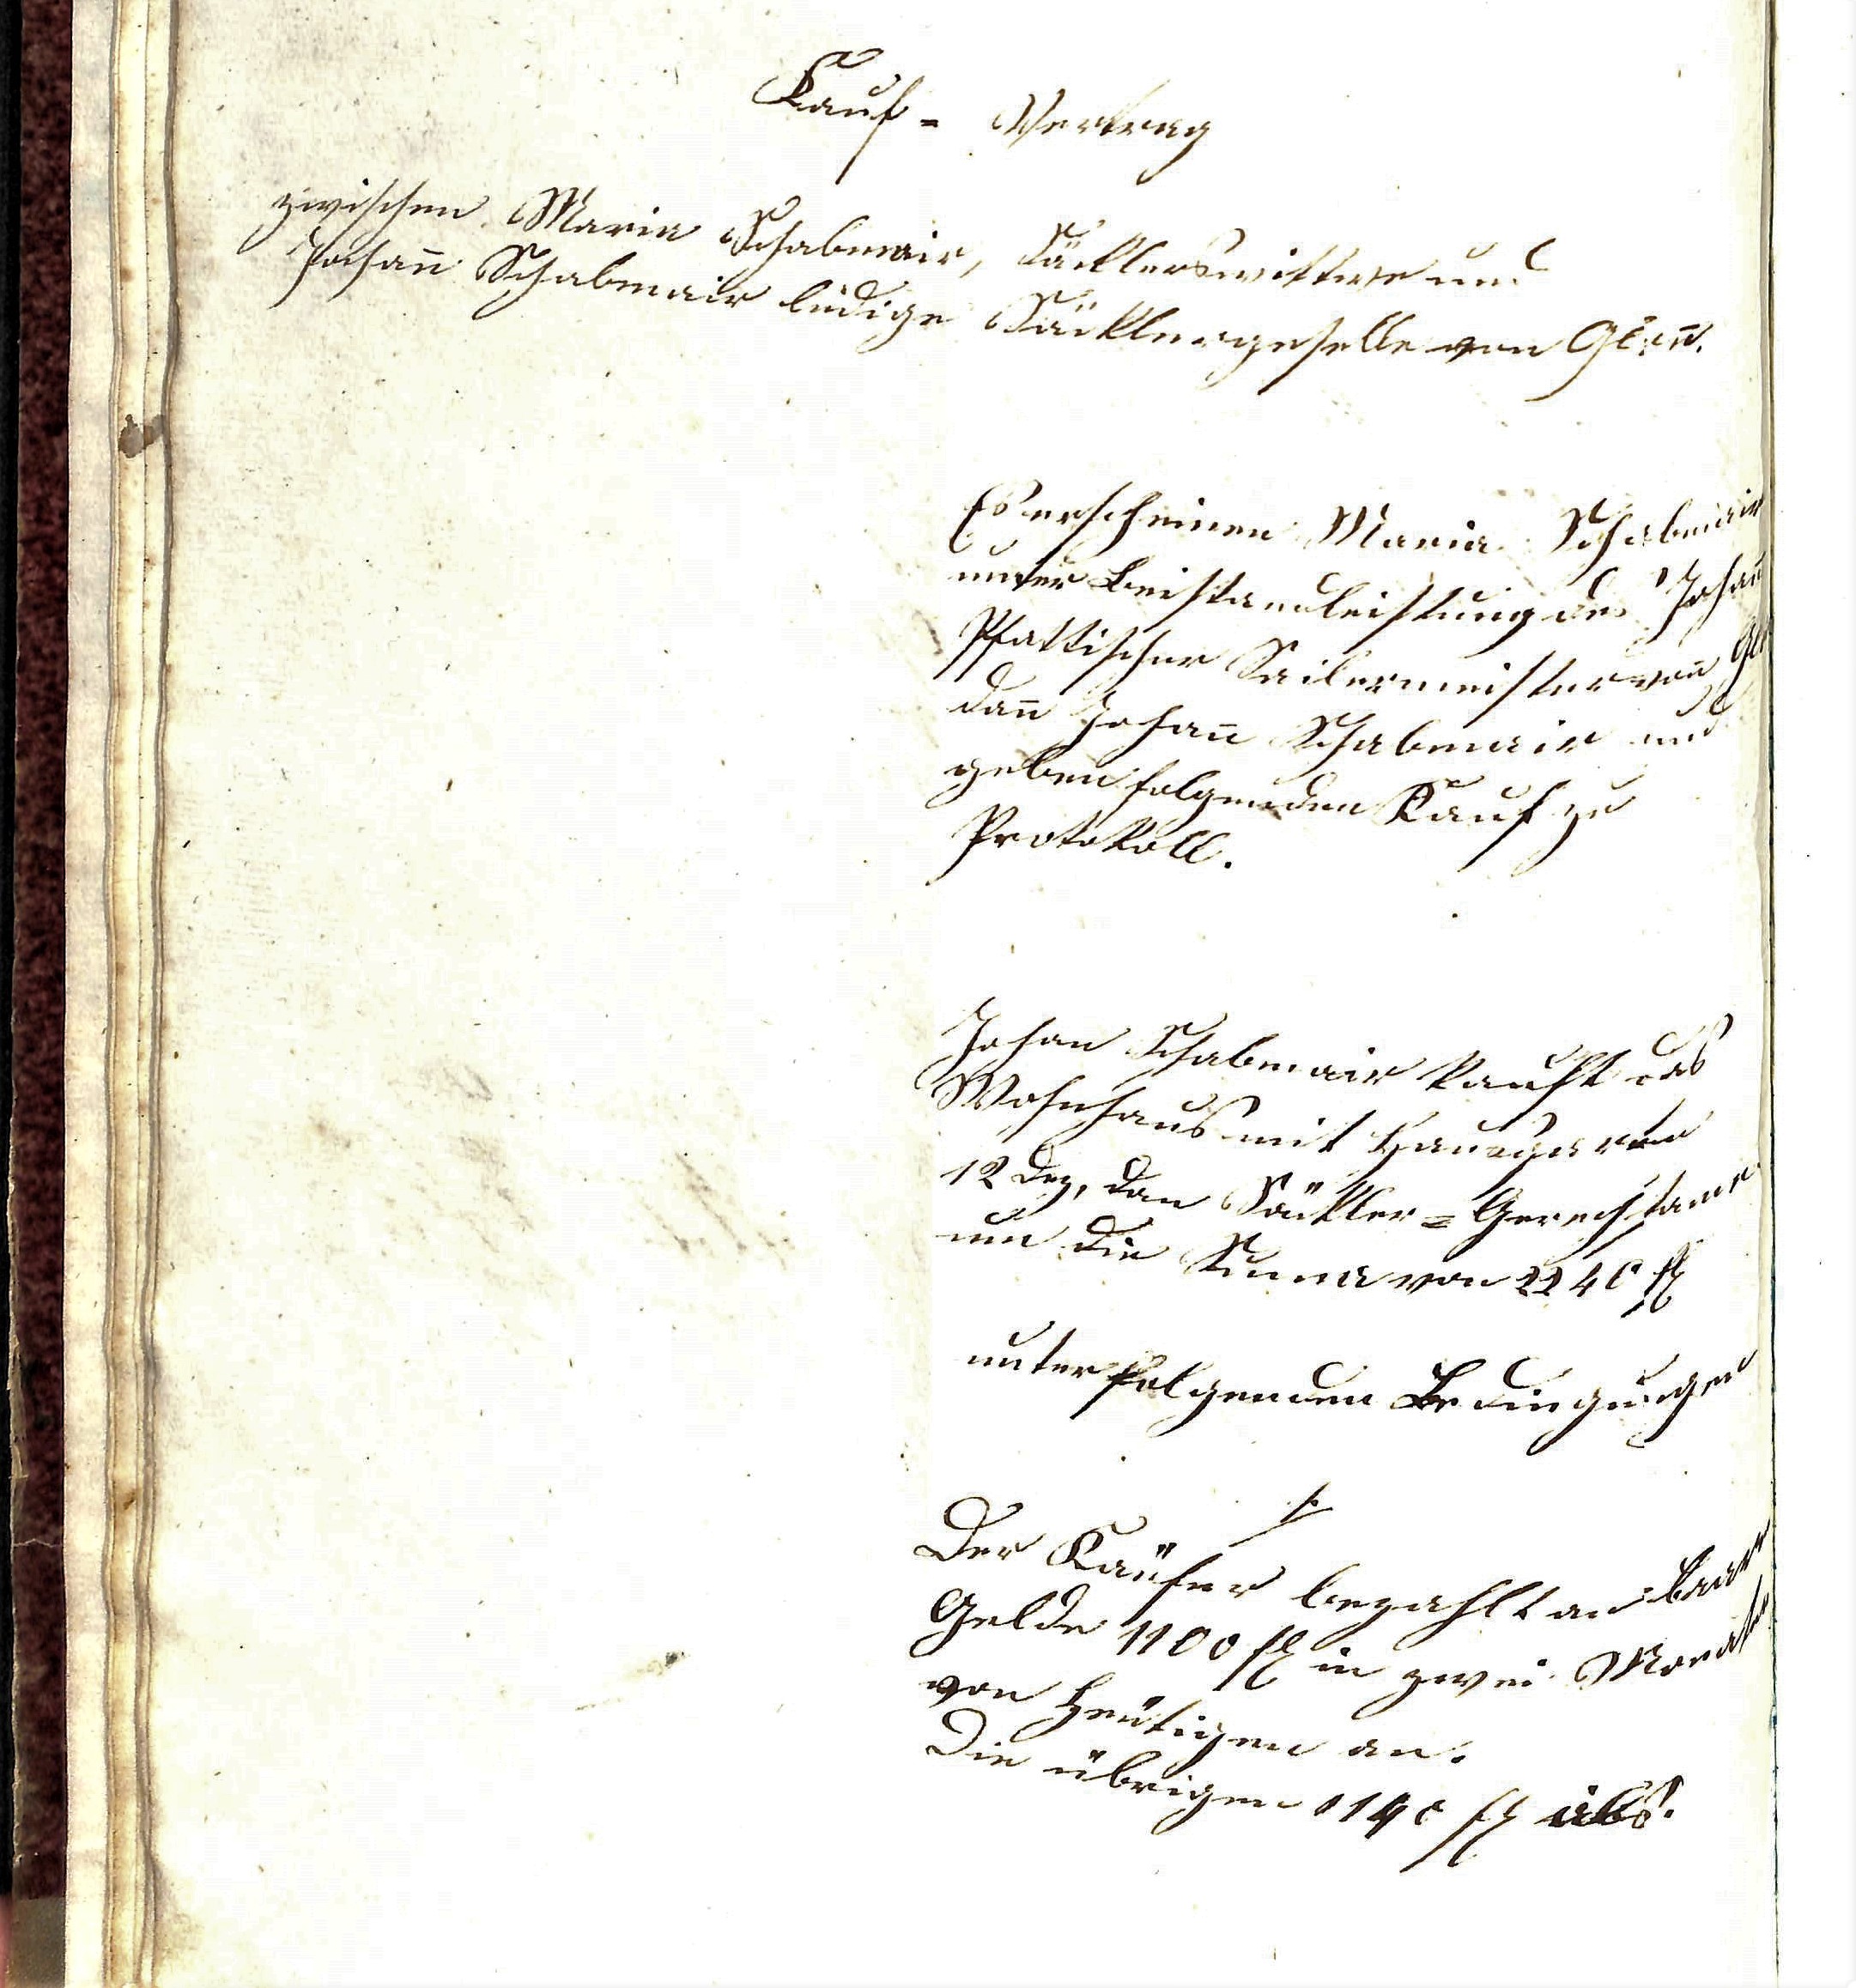 Kauf = Vertrag
zwischen Maria Schabmair, Säcklerswittwe und
Johan̄ Schabmair ledige Säcklergeselle von Glon̄.
Es erscheinen Maria Schabmair
unter Beistandleistung des Johan̄
Pfattischer Seilermeister von
dan̄ Johan̄ Schabmair und
geben folgenden Kauf zu
Protokoll.
Johan Schabmair kauft das
Wohnhaus mit Hausgarten
12 Dez, dan Säckler = Gerechtsame
um die Suma von 2240 fl
unter folgenden Bedingungen
1.
Der Käufer bezahlt an baar
Gelde 1100 fl in zwei Monaten
von Heutigen an.
Die übrigen 1140 fl